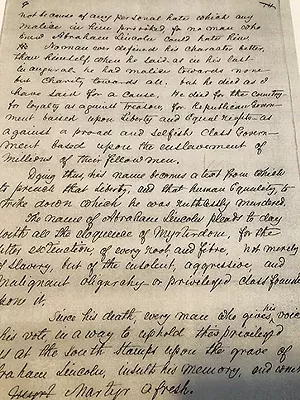 not because of any personal hate which any
malice in him provoked for no man who
knew Abraham Lincoln could hate him.
No man ever defined his character better
than himself when he said as in his last
inaugural he had malice towards none
but Charity towards all. but he died as I
have said for a cause. He died for the country—
for loyalty as against Treason, for Republican Govern-
ment based upon Liberty and Equal rights as
against a proud and selfish Class Govern-
ment based upon the enslavement of
millions of their fellow men.
Dying thus, his name becomes a text from which
to preach that Liberty, and that human Equality, to
strike down which he was ruthlessly murdered.
The name of Abraham Lincoln pleads to day
with all the eloquence of Myrterdom, for the
utter extinction, of every root and fibre, not merely
of slavery, but of the insolent, aggressive, and
malignant oligarchy or privileged class founded
upon it.
Since his death, every man who gives his voice
his vote in a way to uphold this privileged
as at the south Stamps upon the grave of
Abraham Lincoln, insults his memory, and
Martyr afresh.